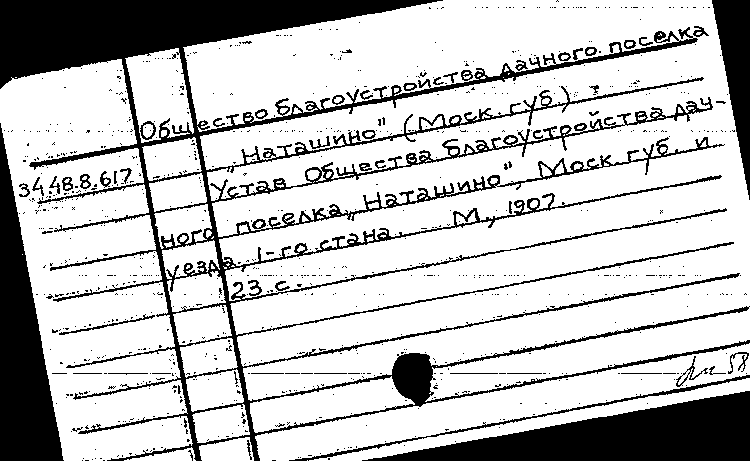 Общество благоустройства дачного поселка
„Наташино". (Моск. губ.)
34.48.8.617
Устав Общества благоустройства дач-
ного поселка „Наташино", Моск. губ. и
уезда, 1-го стана. М., 1907.
23 с.
58